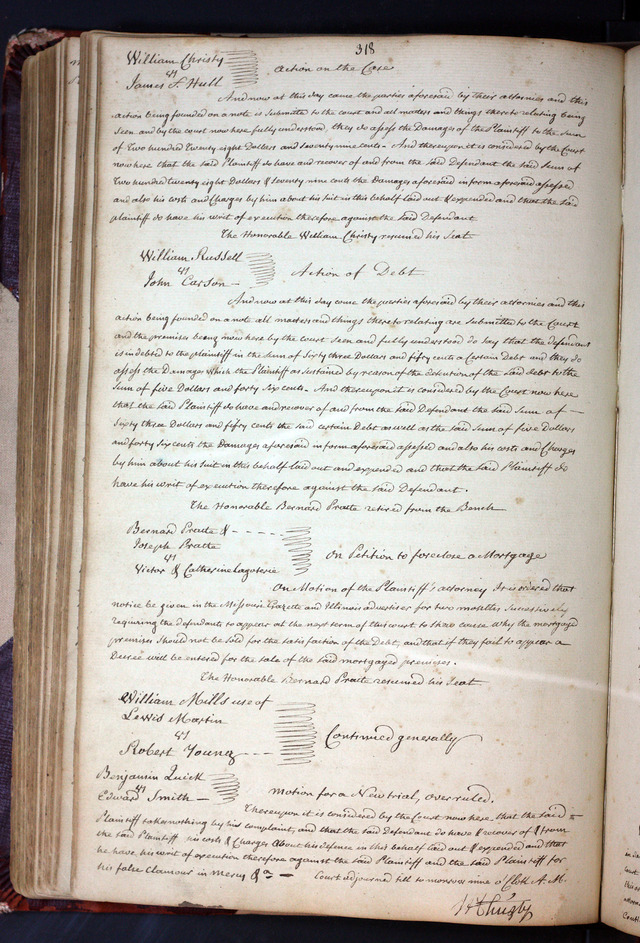 318
William Christy
vs
James S. Hull
Action on the Case
And now at this day came the parties aforesaid by their attornies and this
action being founded on a note is submitted to the court and all matters and things thereto relating being
seen and by the court now here fully understood, they do assess the Damages of the Plaintiff to the sum
of Two hundred Twenty eight Dollars and seventy nine cents - And thereupon it is considered by the Court
now here that the said Plaintiff do have and recover of and from the said Defendant the said sum of
Two hundred twenty eight Dollars & seventy nine cents the Damages aforesaid in form aforesaid assessed
and also his costs and Charges by him about his suit in this behalf laid out & expended and that the said
plaintiff do have his writ of execution therefore against the said Defendant
The Honorable William Christy resumed his Seat
William Russell
vs
John Carson -
Action of Debt
And now at this day came the parties aforesaid by their attornies and this
action being founded on a note all matters and things thereto relating are submitted to the Court
and the premises being now here by the court seen and fully understood do say that the defendant
is indebted to the plaintiff in the sum of Sixty three Dollars and fifty cents a Certain Debt and they do
assess the Damages which the Plaintiff as sustained by reason of the detention of the said debt to the
sum of five Dollars and forty six cents. And thereupon it is considered by the Court now here
that the said Plaintiff do have and recover of and from the said Defendant the said Sum of -
Sixty three Dollars and fifty cents the said certain Debt as well as the said sum of five Dollars
and forty six cents the Damages aforesaid in form aforesaid assessed and also his costs and Charges
by him about his suit in this behalf laid out and expended and that the said Plaintiff do
have his writ of execution therefore against the said Defendant.
The Honorable Bernard Pratte retired from the Bench
Bernard Pratte &
Joseph Pratte
vs
Victor & Catherine Lagoterie
On Petition to foreclose a Mortgage
On Motion of the Plaintiff's attorney It is ordered that
notice be given in the Missouri Gazette and Illinois advertiser for two months successively
requiring the defendants to appear at the next term of this court to shew cause why the mortgaged
premises should not be sold for the satisfaction of the Debt, and that if they fail to appear a
Decree will be entered for the sale of the said mortgaged premises.
The Honorable Bernard Pratte resumed his Seat
William Mills use of
Lewis Martin
vs
Robert Young
Continued generally
Benjamin Quick
vs
Edward Smith -
Motion for a New trial, overruled.
Thereupon it is considered by the Court now here, that the said
Plaintiff take nothing by his complaint, and that the said Defendant do have & recover of & from
the said Plaintiff his costs & Charges about his defence in this behalf laid out & expended and that
he have his writ of execution therefore against the said Plaintiff and the said Plaintiff for
his false Clamour in Mercy &c - Court adjourned till to morrow nine o'Clock A.M.
Wm Christy